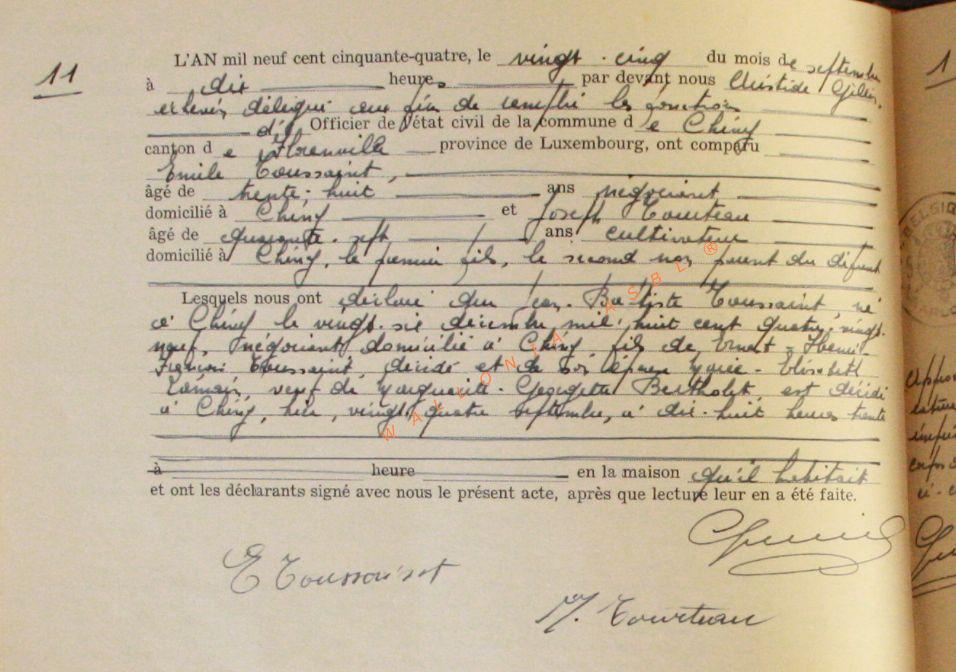 11
L'AN mil neuf cent cinquante-quatre, le vingt-cinq du mois de septembre
à dix heures, par devant nous Aristide
échevin délégué aux fins de remplir les fonctions
d' Officier de l'état civil de la commune de Chiny
canton de Florenville province de Luxembourg, ont comparu
Emile Toussaint,
âgé de trente-huit ans négociant
domicilié à Chiny et Joseph Tourteau
âgé de quarante-sept ans cultivateur
domicilié à Chiny, le premier fils, le second non parent du défunt
Lesquels nous ont déclaré que Jean-Baptiste Toussaint, né
à Chiny le vingt-six décembre mil huit cent quatre-vingt-
neuf, négociant, domicilié à Chiny, fils de Ernest-Henri-
François Toussaint, décédé et de son épouse Marie-Elisabeth
veuf de Marguerite-Georgette Bertholet, est décédé
à Chiny, hier, vingt-quatre septembre, à dix-huit heures trente
à heure en la maison qu'il habitait
et ont les déclarants signé avec nous le présent acte, après que lecture leur en a été faite.
E Toussaint
J. Tourteau
WALLONIA ASBL ®